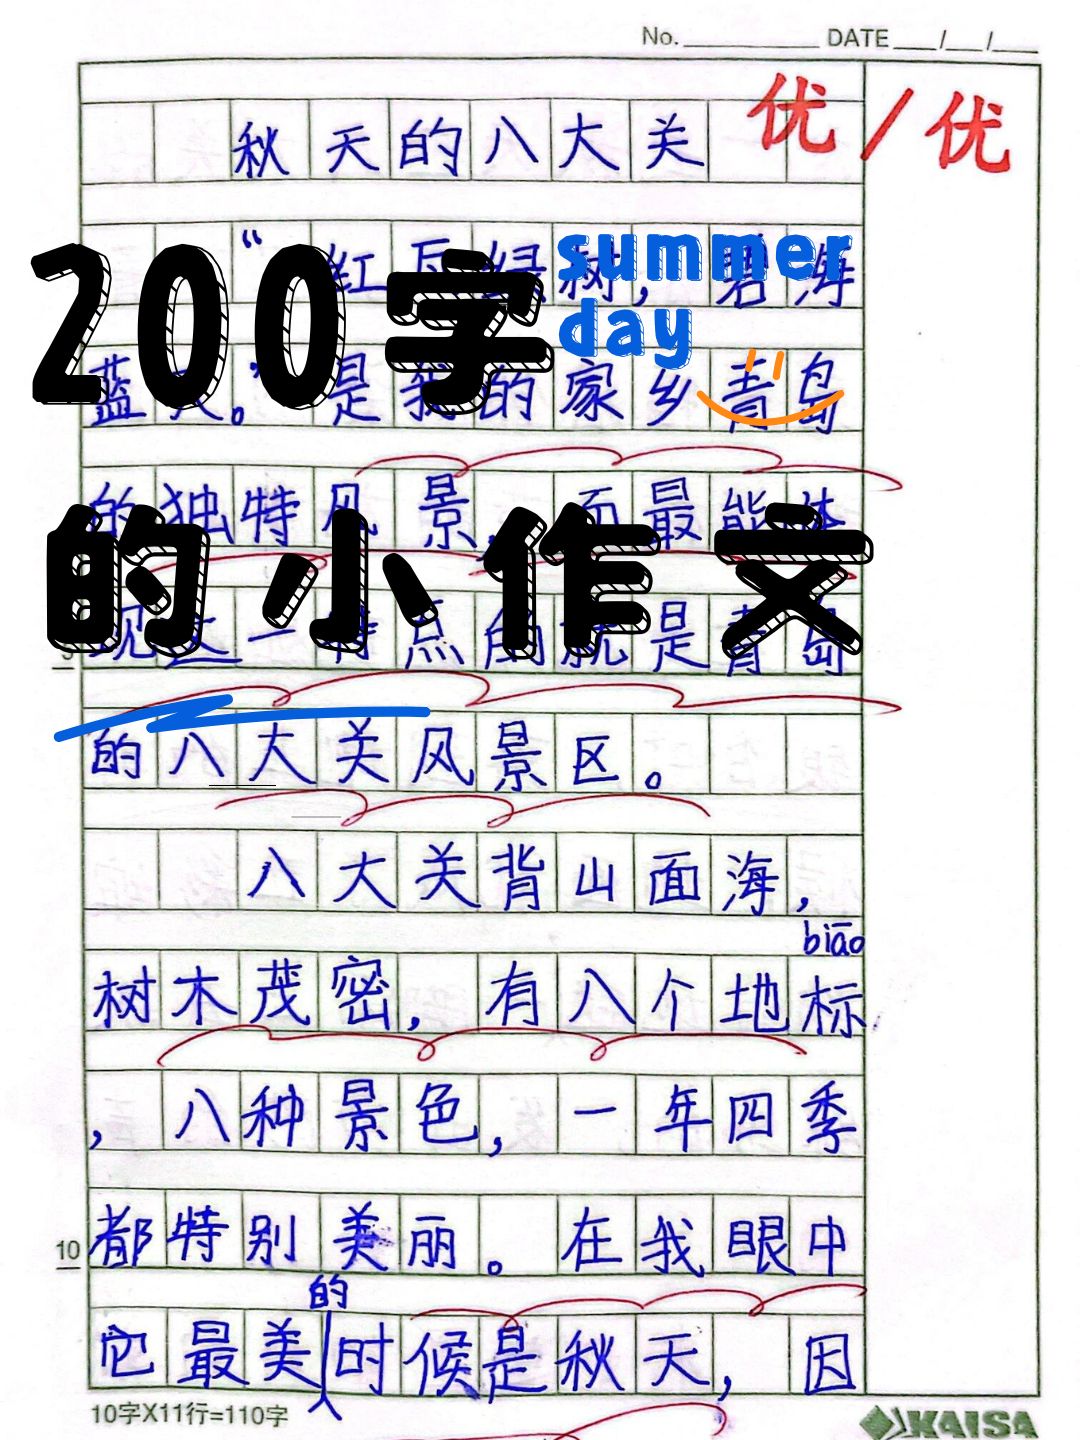 No. DATE / /
优/优
秋天的八大关
200字
summer
day
“红瓦绿树，碧海
蓝天。”是我的家乡青岛
的独特风景，而最能体
的小作文
现这一特点的就是青岛
5
的八大关风景区。
八大关背山面海，
biāo
树木茂密，有八个地标
，八种景色，一年四季
都特别美丽。在我眼中
10
的
它最美时候是秋天，因
10字X11行=110字
KAISA